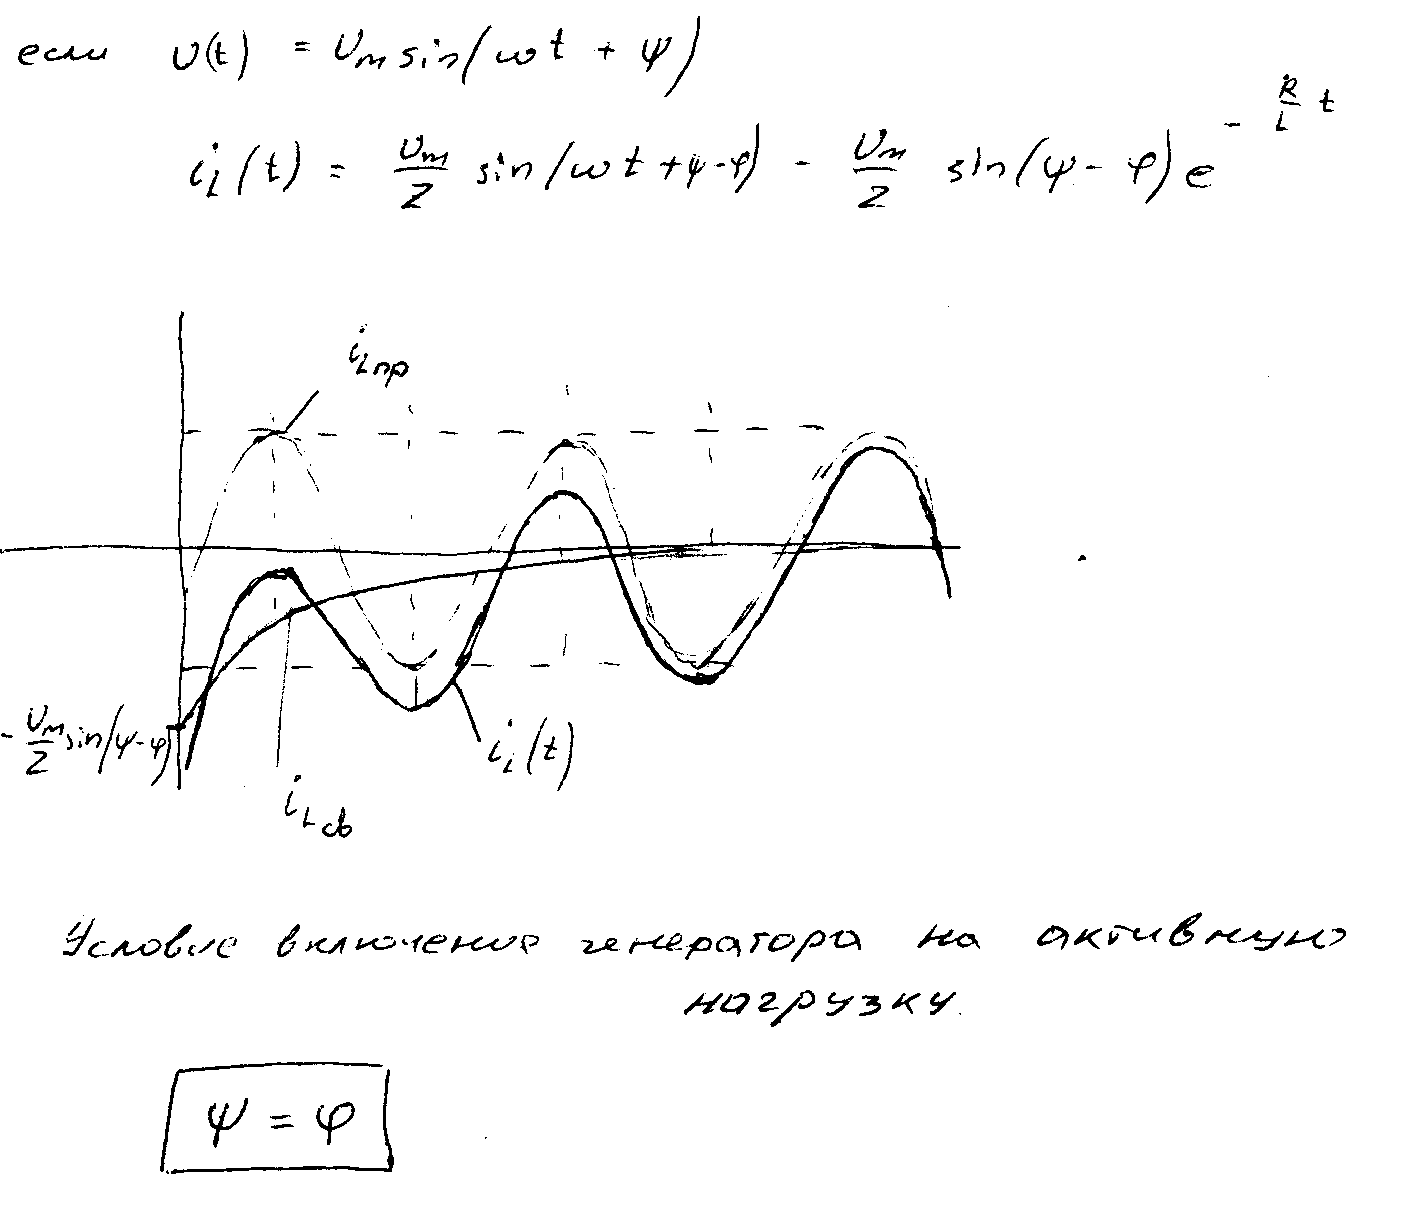 если U(t) = Um sin(ωt + ψ)
iL(t) = Um/Z sin(ωt + ψ-φ) - Um/Z sin(ψ - φ) e^(- R/L t)
iLпр
- Um/Z sin(ψ-φ)
iL(t)
iLсв
Условие включение генератора на активную
нагрузку.
ψ = φ